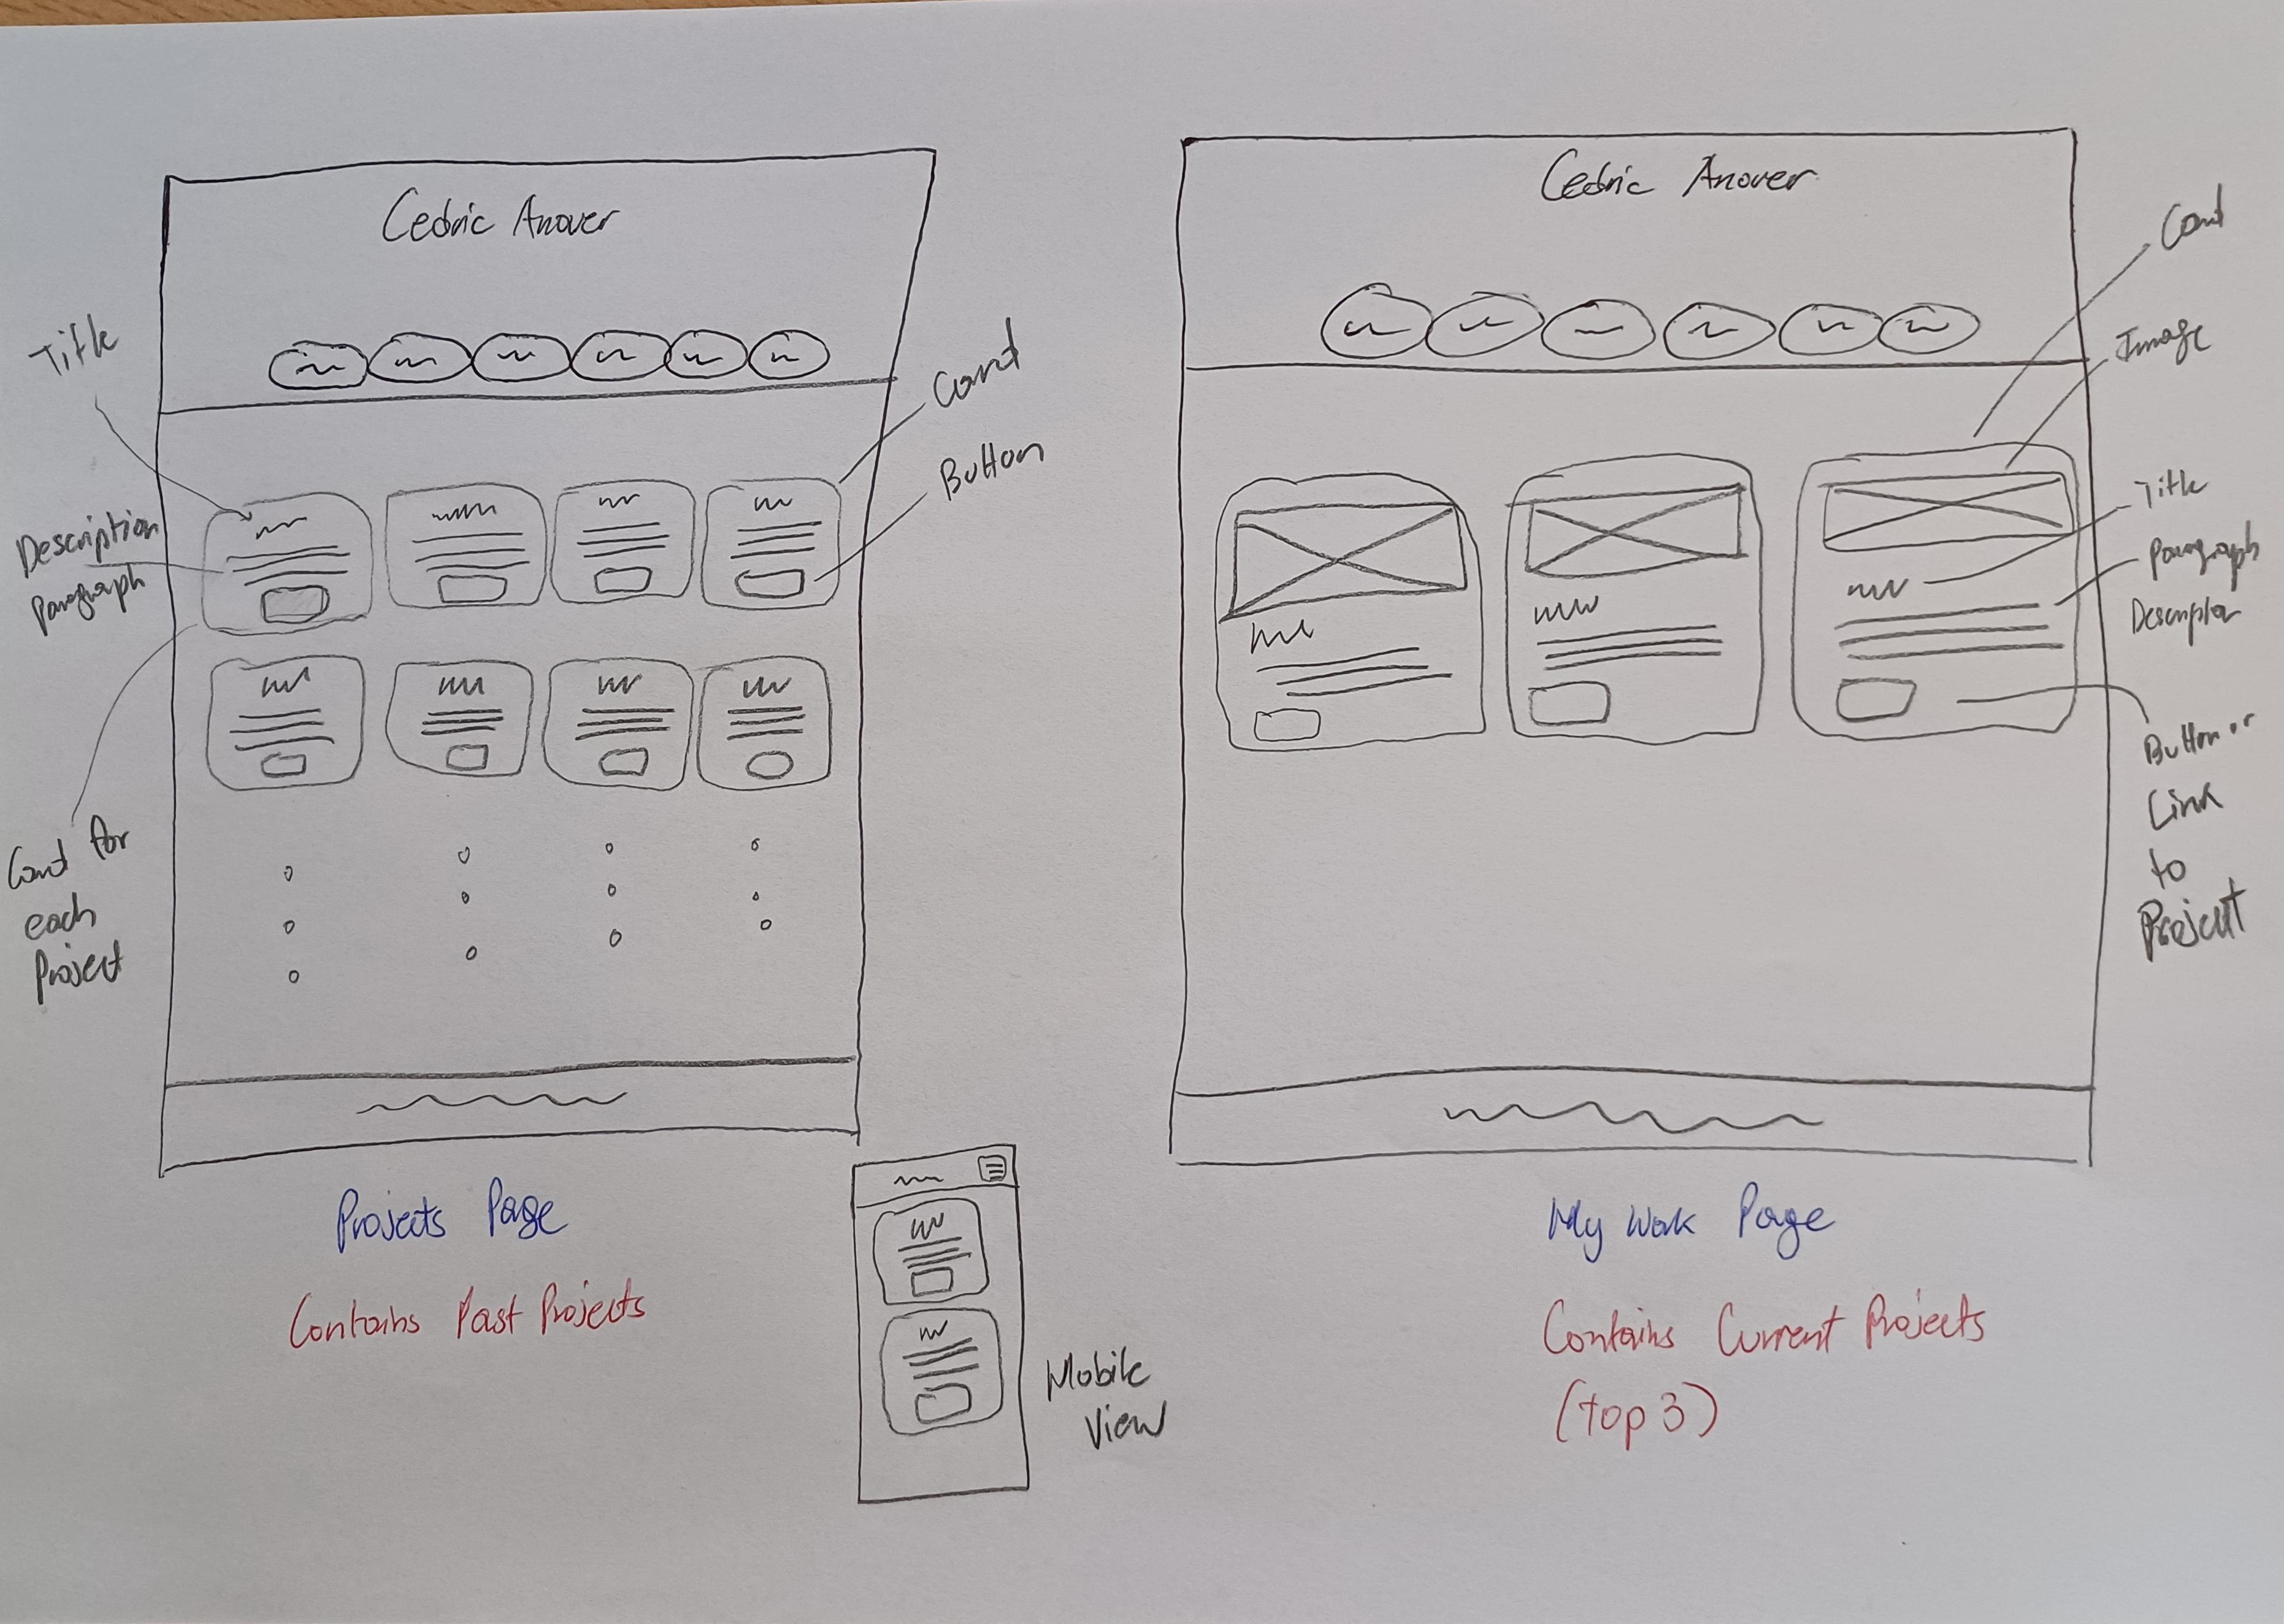 Cedric Anover
Title
Card
Button
Description
Paragraph
Card for
each
Project
Projects Page
Contains Past Projects
Mobile
View
Cedric Anover
Card
Image
Title
Paragraph
Button or
Link
to
Project
My Work Page
Contains Current Projects
(top 3)